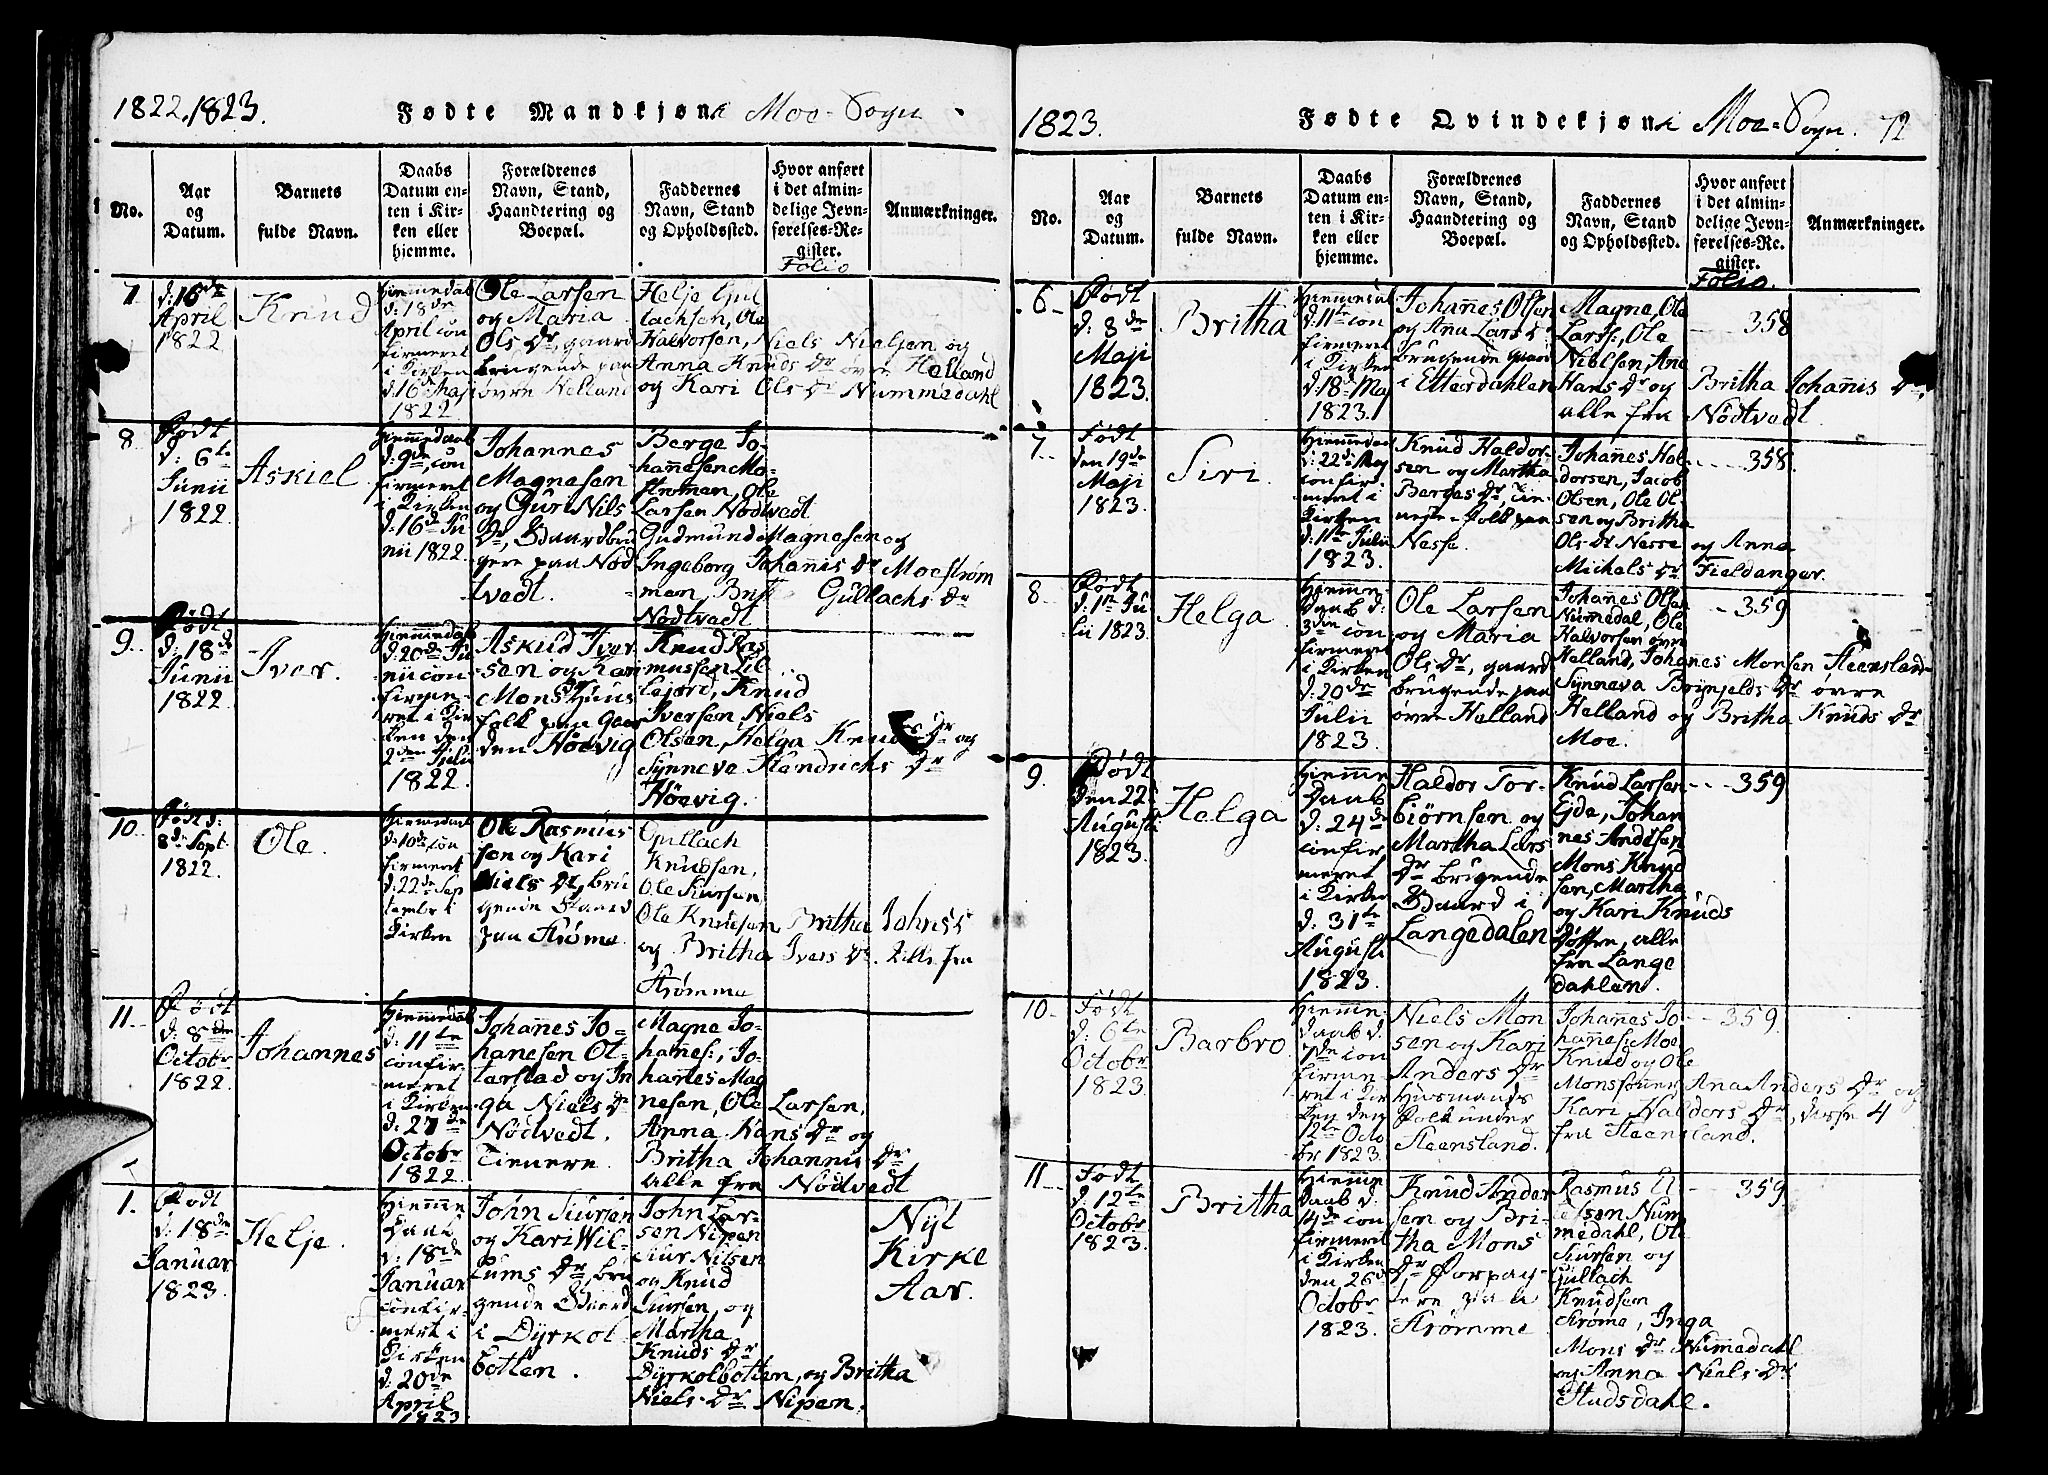 1822, 1823. Fødte Mandkjøn i Moe-Sogn.
No.
Aar
og
Datum.
Barnets
fulde Navn.
Daabs
Datum en-
ten i Kir-
ken eller
hjemme.
Forældrenes
Navn, Stand,
Haandtering og
Boepæl.
Faddernes
Navn, Stand
og Opholdssted.
Hvor anført
i det almin-
delige Jevn-
førelses-Re-
gister.
Folio
Anmærkninger.
7
d: 16de
April
1822
Knud
Hiemmedab
d: 18de
April con
firmeret
i Kirken
d: 16de Maji
1822
Ole Larsen
og Maria
Ols Dr, gaard
brugende paa
øvre Helland
Helje Gul
lachsen, Ole
Halvorsen, Niels Nielsen og
Anna Knuds Dr øvre Helland
og Kari Ols Dr Nummedahl
8
Født
d: 6te
Junii
1822.
Askiel
Hiemmedaab
d: 9de, con
firmeret
i Kirken
d: 16de Ju
nii 1822.
Johannes
Magnesen
og Guri Nils
Dr, Gaardbru
gere paa Nød
tvedt.
Berge Jo-
hanesen Mo-
strømen, Ole
Larsen Nødtvedt
Gudmund Magnesen og
Ingeborg Johanis Dr Moestrøm
men, Gullachs Dr
Nødtvedt
9.
Født
d: 18de
Junii
1822.
Iver.
Hiemmedab
d: 20de Ju
nii con-
firme-
ret i Kir
ken den
2den Julii
1822.
Askild Iver
sen og Kari
Mons Dr Huus
folk paa Gaar
den Nødvig
Knud Ras
mussen Lil
lejord, Knud
Iversen, Niels
Olsen, Helga Knuds Dr og
Synneva Hendrichs Dr
Høevig.
10.
Født d:
8de Sept.
1822.
Ole.
Hiemmedaab
d: 10de con
firmeret
d: 22de Sep
tembr i
Kirken
Ole Rasmus
sen og Kari
Niels Dr, bru
gende Gaard
paa Strøme.
Gullach
Knudsen,
Ole Siursen,
Ole Knudsen, Britha Johnss
og Britha Ivers Dr. alle fra
Strømme
11.
Født
d: 8de
Octobr
1822.
Johannes
Hiemmedab
d: 11te
confir-
meret
i Kirken
d: 27de
Octobr
1822.
Johanes Jo-
hanesen Ot-
terstad og In
ga Niels Dr
Nødvedt.
Tienere.
Magne Jo-
hanes:, Jo-
hanes Mag
nesen, Ole Larsen,
Anna Hans Dr og
Britha Johannis Dr
alle fra Nødvedt
1.
Født
d: 18de
Januar
1823.
Helje.
Hiemme
Daab
d: 18de
Januar
confir-
mert i
Kirken
d: 20de
April
1823
John Siursen
og Kari Wil-
lums Dr, bru
gende Gaard
i Dyrkol
botten.
John Lar-
sen Nipen
Siur Nilsen
og Knud
Siursen, og
Martha
Knuds Dr
Dyrkolbotten, og Britha
Niels Dr Nipen.
Nyt
Kirke
Aar.
1823. Fødte Qvindekjøn i Moe-Sogn. 72
No.
Aar
og
Datum.
Barnets
fulde Navn.
Daabs
Datum en-
ten i Kir-
ken eller
hjemme.
Forældrenes
Navn, Stand,
Haandtering og
Boepæl.
Faddernes
Navn, Stand
og Opholdssted.
Hvor anført
i det almin-
delige Jevn-
førelses-Re-
gister.
Folio.
Anmærkninger.
6
Født
d: 8de
Maji
1823.
Britha
Hiemmedab
d: 11te con
firmeret
i Kirken
d: 18de Maj
1823.
Johanes Olsen
og Ana Lars Dr
brugende gaard
i Etterdahlen
Magne, Ole
Larss:, Ole
Nielsen, Ane
Hans Dr og Britha Johanis Dr,
alle fra Nødtvedt.
358
7
Født
den 19de
Maji
1823.
Siri.
Hiemmedab
d: 22de Maj
confir-
meret i
Kirken
d: 11te Julii
1823.
Knud Haldor-
sen og Martha
Berges Dr, Tie-
neste-folk paa
Nesse.
Johanes Hal-
dorsen, Jacob
Olsen, Ole Ol-
sen og Britha
Ols Dr Nesse og Anna
Michels Dr Fieldanger.
358.
8
Født
d: 1te Ju
lii 1823.
Helga
Hiemme-
daab d:
3die con-
firmeret
i Kirken
d: 20de
Julii
1823.
Ole Larsen
og Maria
Ols Dr, gaard
brugende paa
øvre Helland
Johanes Olsen
Numedal, Ole
Halvorsen øvre
Helland, Johanes Monsen Steensland
Synneva Brynjelds Dr øvre
Helland og Britha Knuds Dr
Moe.
359
9.
Født
den 22de
Augusti
1823.
Helga
Hiemme
daab
d: 24de
confir
meret
i Kirken
d: 31te
Augusti
1823.
Haldor Tor-
biørnsen og
Martha Lars
Dr brugende
Gaard i
Langedalen
Knud Larsen
Eide, Johan
nes Andersen
Mons Knud
sen, Martha
og Kari Knuds
Døttre, alle
fra Lange
dahlen.
359
10
Født
d: 6te
Octobr
1823.
Barbro
Hiemme-
daab d.
7de con
firme-
ret i Kir
ken den
12te Octo
br 1823.
Niels Mon
sen og Kari
Anders Dr
Husmands
Folk under
Steensland.
Johanes Jo-
hanes: Moe
Knud og Ole
Monssønner, Ana Anders Dr og
Kari Haldors Dr, disse 4
fra Steensland.
359
11
Født
d: 12te
Octobr
1823.
Britha
Hiemme
daab d:
14de con
firmeret
i Kirken
den 26de
Octobr
1823.
Knud Ander
sen og Bri-
tha Mons
Dr Forpag-
tere paa
Strømme
Rasmus El
lefsen Num
medahl, Ole
Siursen og
Gullach
Knudsen
Strøme, Inga
Mons Dr Numedahl
og Anna Niels Dr
Studsdahl.
359.